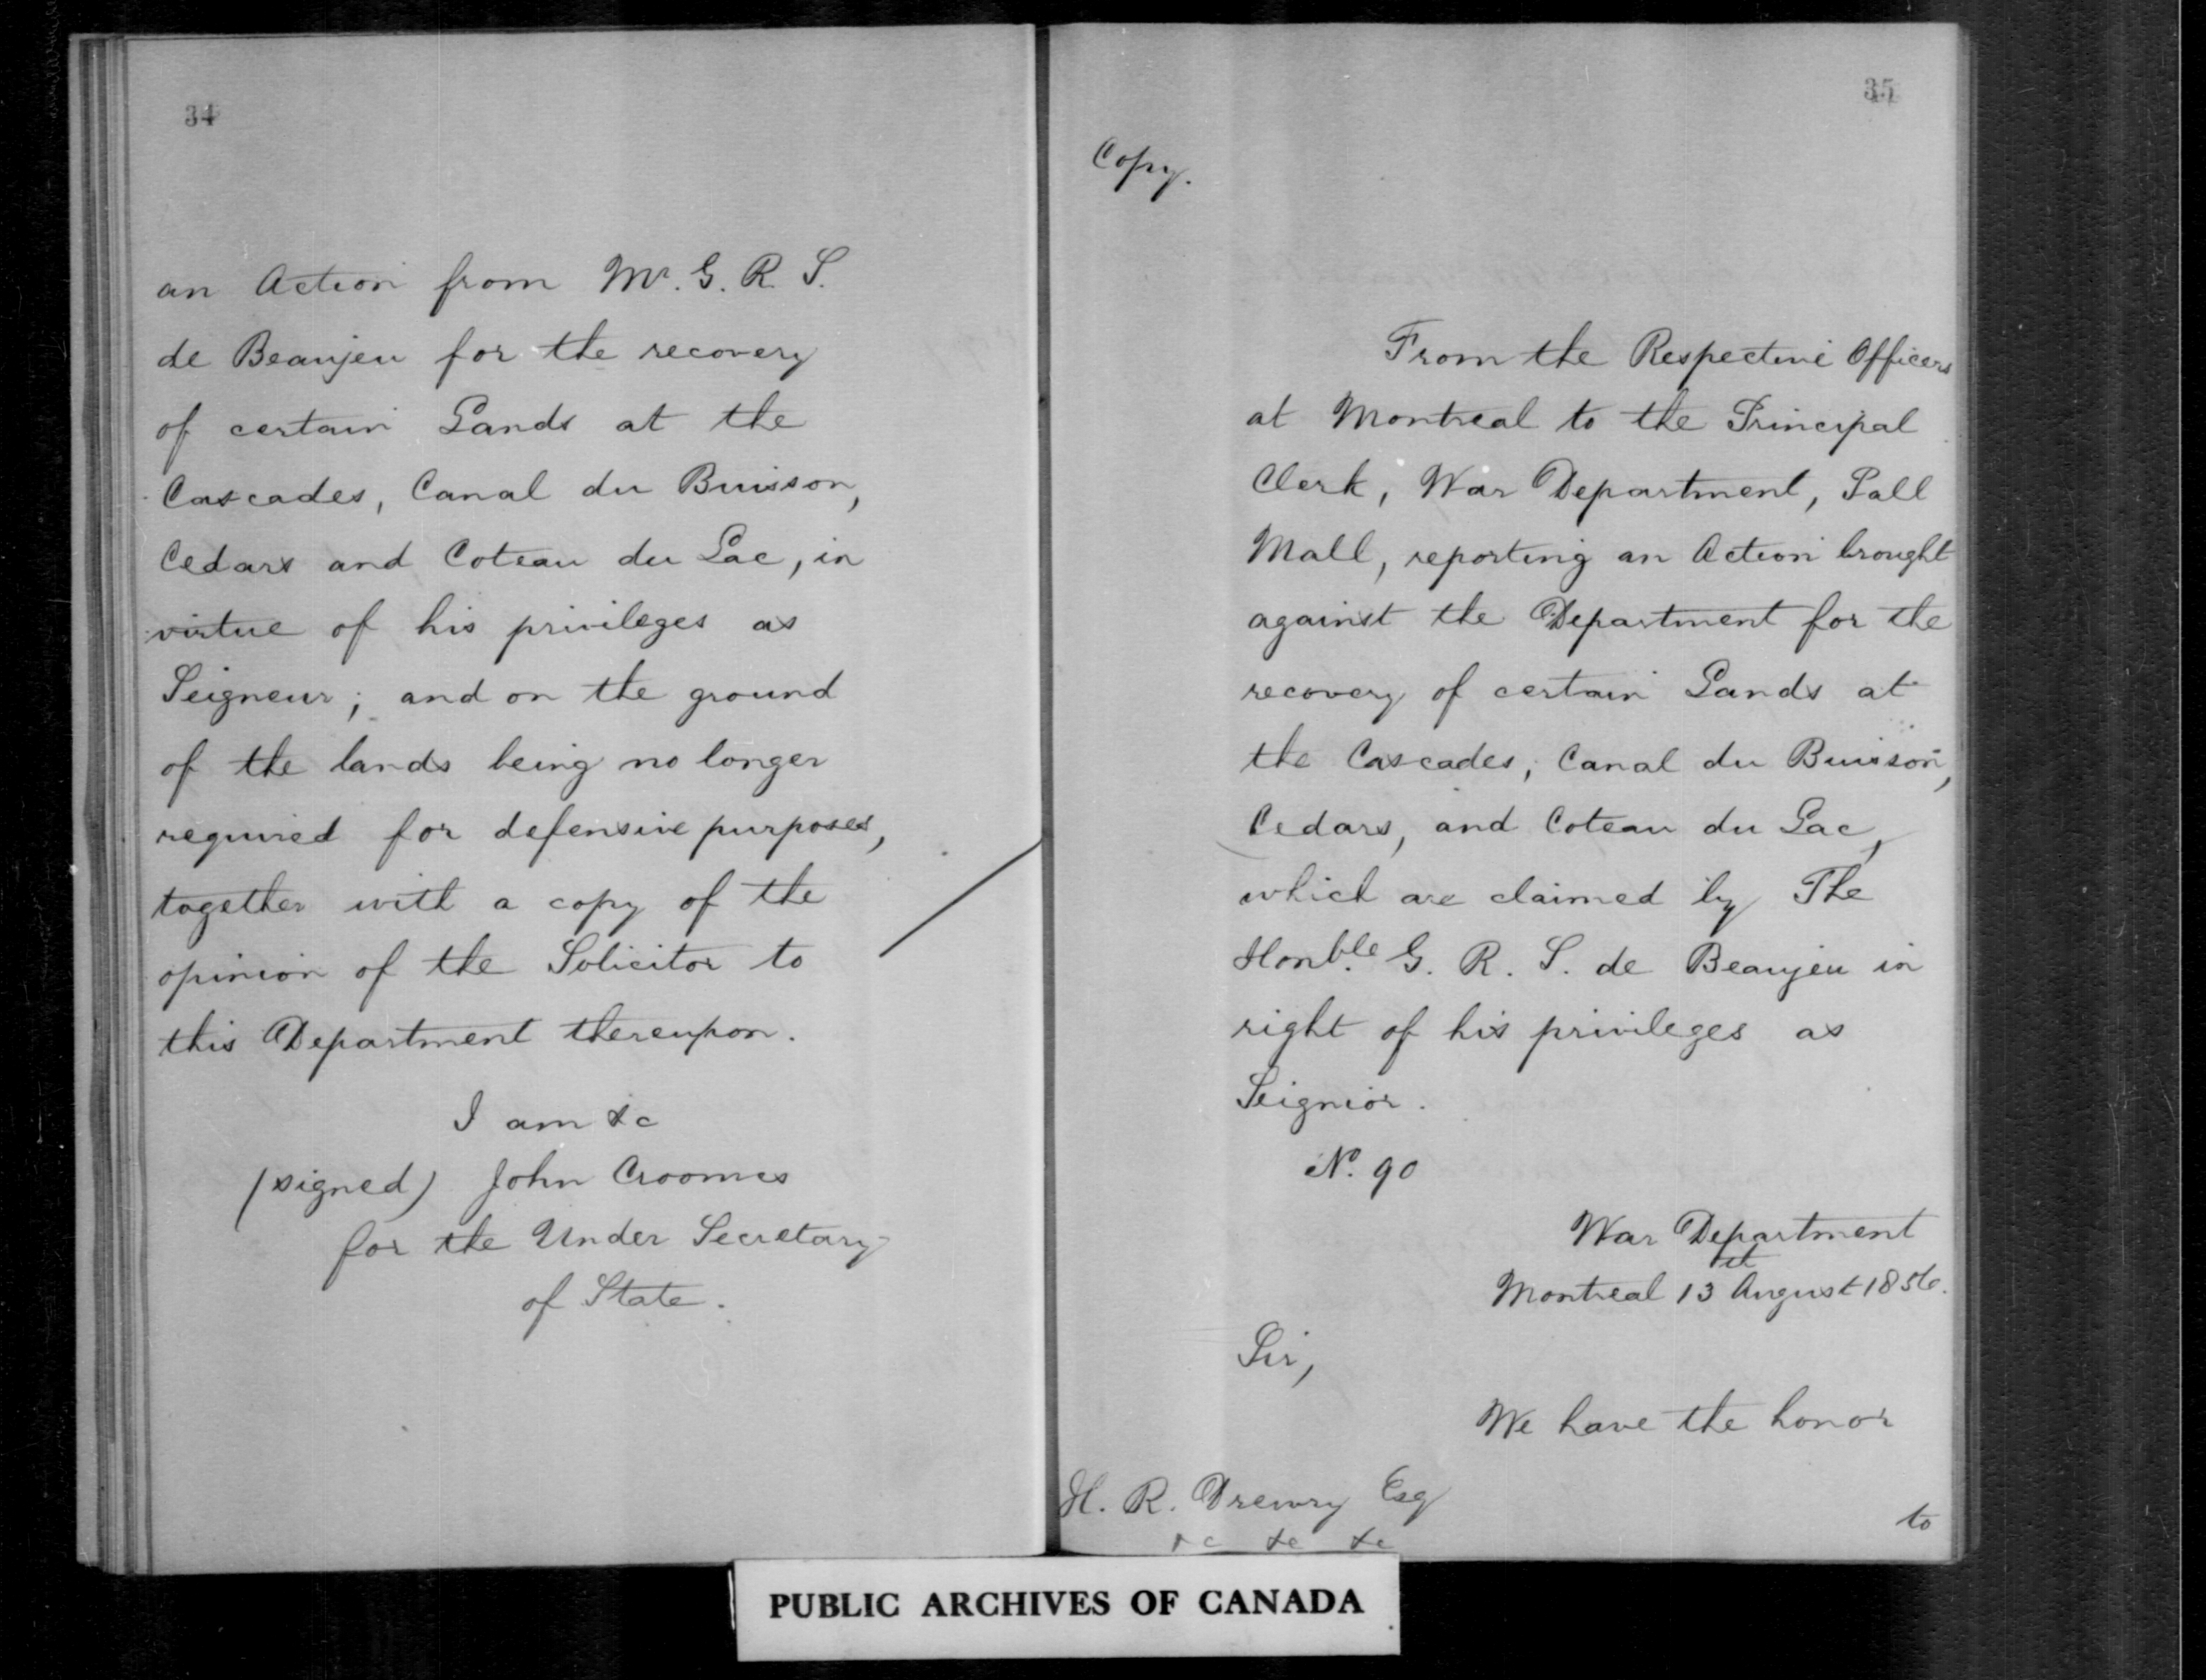 34
an Action from Mr. G. R. S.
de Beaujeu for the recovery
of certain Lands at the
Cascades, Canal du Buisson,
Cedars and Coteau du Lac, in
virtue of his privileges as
Seigneur; and on the ground
of the lands being no longer
required for defensive purposes,
together with a copy of the
opinion of the Solicitor to
this Department thereupon.
I am &c
(signed) John Croomes
for the Under Secretary
of State.
35
Copy.
From the Respective Officers
at Montreal to the Principal
Clerk, War Department, Pall
Mall, reporting an Action brought
against the Department for the
recovery of certain Lands at
the Cascades, Canal du Buisson,
Cedars, and Coteau du Lac,
which are claimed by The
Honble. G. R. S. de Beaujeu in
right of his privileges as
Seignior.
No. 90
War Department
Montreal 13th August 1856.
Sir,
We have the honor
H. R. Drewry Esq
&c &c &c
to
PUBLIC ARCHIVES OF CANADA